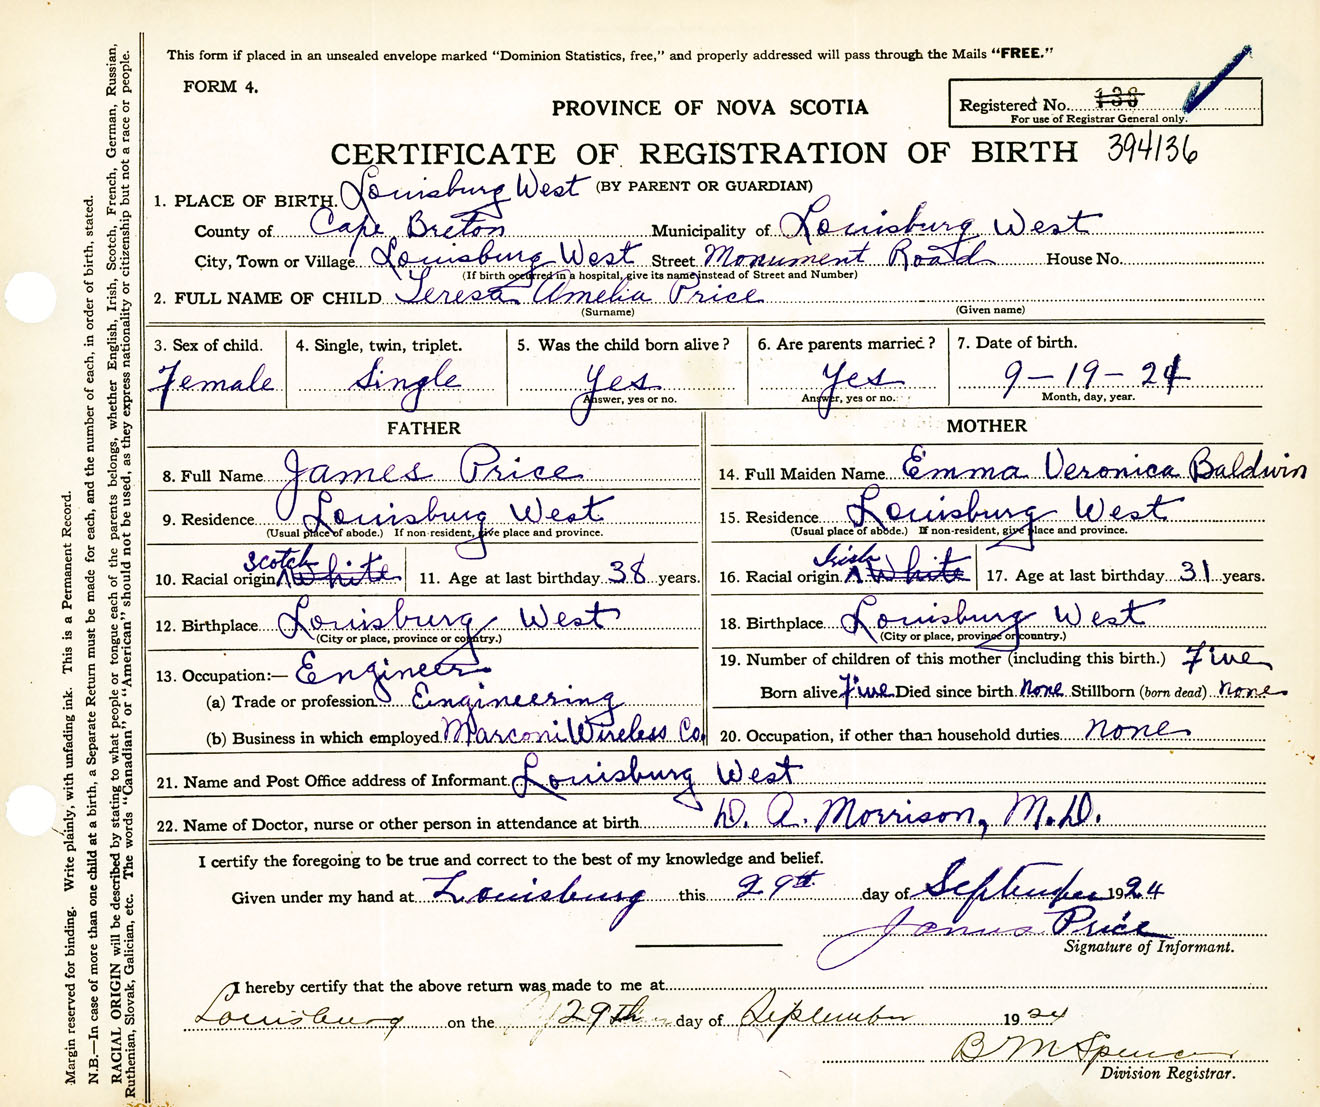 This form if placed in an unsealed envelope marked “Dominion Statistics, free,” and properly addressed will pass through the Mails “FREE.”
FORM 4.
PROVINCE OF NOVA SCOTIA
Registered No. 138
For use of Registrar General only.
CERTIFICATE OF REGISTRATION OF BIRTH 394136
(BY PARENT OR GUARDIAN)
1. PLACE OF BIRTH. Louisburg West
County of Cape Breton Municipality of Louisburg West
City, Town or Village Louisburg West Street Monument Road House No.
(If birth occurred in a hospital, give its name instead of Street and Number)
2. FULL NAME OF CHILD Teresa Amelia Price
(Surname) (Given name)
3. Sex of child. 4. Single, twin, triplet. 5. Was the child born alive? 6. Are parents married? 7. Date of birth.
Female Single Yes Yes 9-19-24
Answer, yes or no. Answer, yes or no. Month, day, year.
FATHER
8. Full Name James Price
9. Residence Louisburg West
(Usual place of abode.) If non-resident, give place and province.
Scotch
10. Racial origin White 11. Age at last birthday 38 years.
12. Birthplace Louisburg West
(City or place, province or country.)
13. Occupation:— Engineer
(a) Trade or profession Engineering
(b) Business in which employed Marconi Wireless Co.
MOTHER
14. Full Maiden Name Emma Veronica Baldwin
15. Residence Louisburg West
(Usual place of abode.) If non-resident, give place and province.
Irish
16. Racial origin White 17. Age at last birthday 31 years.
18. Birthplace Louisburg West
(City or place, province or country.)
19. Number of children of this mother (including this birth.) Five
Born alive Five Died since birth None Stillborn (born dead) None
20. Occupation, if other than household duties None
21. Name and Post Office address of Informant Louisburg West
22. Name of Doctor, nurse or other person in attendance at birth D. A. Morrison, M.D.
I certify the foregoing to be true and correct to the best of my knowledge and belief.
Given under my hand at Louisburg this 29th day of September 1924
James Price
Signature of Informant.
I hereby certify that the above return was made to me at
Louisburg on the 29th day of September 1924
B M Spencer
Division Registrar.
Margin reserved for binding. Write plainly, with unfading ink. This is a Permanent Record.
N.B.—In case of more than one child at a birth, a Separate Return must be made for each, and the number of each, in order of birth, stated.
RACIAL ORIGIN will be described by stating to what people or tongue each of the parents belongs, whether English, Irish, Scotch, French, German, Russian,
Ruthenian, Slovak, Galician, etc. The words “Canadian” or “American” should not be used, as they express nationality or citizenship but not a race or people.